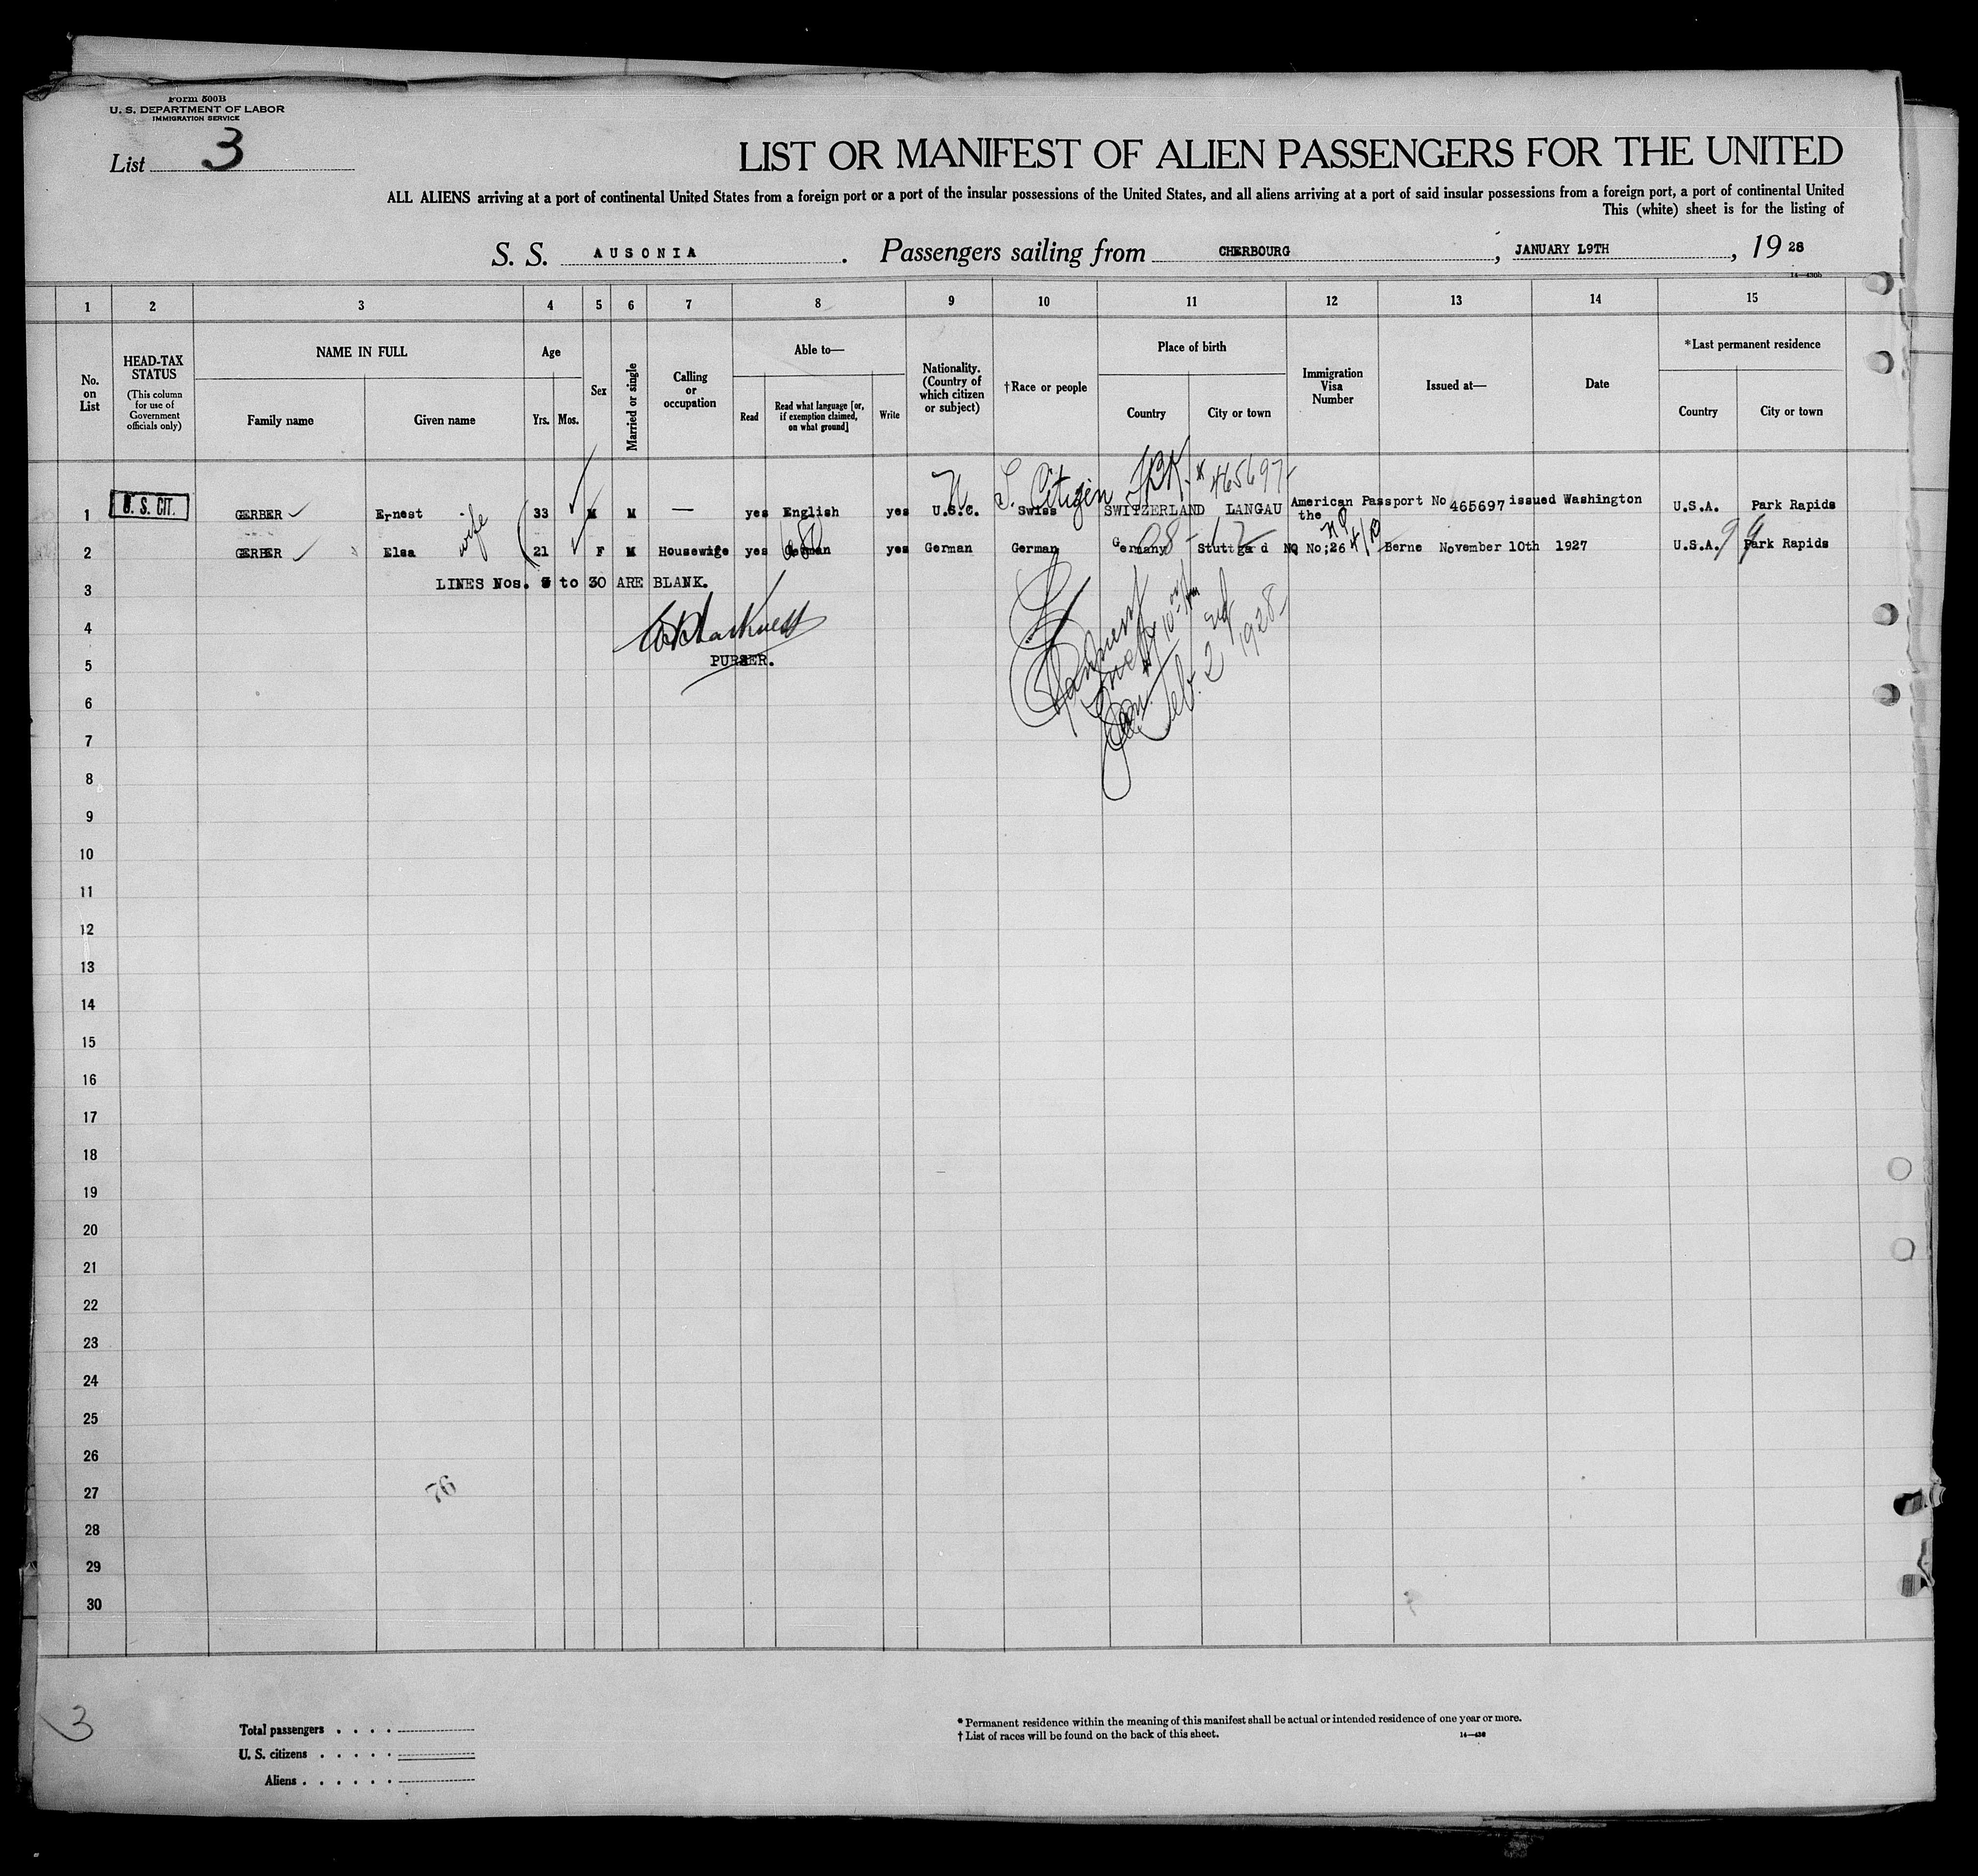 Form 500B
U. S. DEPARTMENT OF LABOR
IMMIGRATION SERVICE
List 3
LIST OR MANIFEST OF ALIEN PASSENGERS FOR THE UNITED
ALL ALIENS arriving at a port of continental United States from a foreign port or a port of the insular possessions of the United States, and all aliens arriving at a port of said insular possessions from a foreign port, a port of continental United
This (white) sheet is for the listing of
S. S. AUSONIA. Passengers sailing from CHERBOURG, JANUARY L9TH, 1928
14—430b
1 2 3 4 5 6 7 8 9 10 11 12 13 14 15
No. on List
HEAD-TAX STATUS (This column for use of Government officials only)
NAME IN FULL
Family name Given name
Age
Yrs. Mos.
Sex
Married or single
Calling or occupation
Able to—
Read Read what language [or, if exemption claimed, on what ground] Write
Nationality. (Country of which citizen or subject)
†Race or people
Place of birth
Country City or town
Immigration Visa Number
Issued at—
Date
*Last permanent residence
Country City or town
S. Citizen 465697
1 U. S. CIT. GERBER Ernest 33 M M — yes English yes U.S.C. Swiss SWITZERLAND LANGAU American Passport No 465697 issued Washington U.S.A. Park Rapids
the
wife
2 GERBER Elsa 21 F M Housewife yes German yes German German Germany Stuttgard NQ No;26 Berne November 10th 1927 U.S.A. Park Rapids
99
3 LINES Nos. 3 to 30 ARE BLANK.
4
5 PURSER.
Feb. 2nd 1928
6
7
8
9
10
11
12
13
14
15
16
17
18
19
20
21
22
23
24
25
26
27
76
28
29
30
3
Total passengers . . . .
U. S. citizens . . . . .
Aliens . . . . . .
*Permanent residence within the meaning of this manifest shall be actual or intended residence of one year or more.
†List of races will be found on the back of this sheet.
14—430